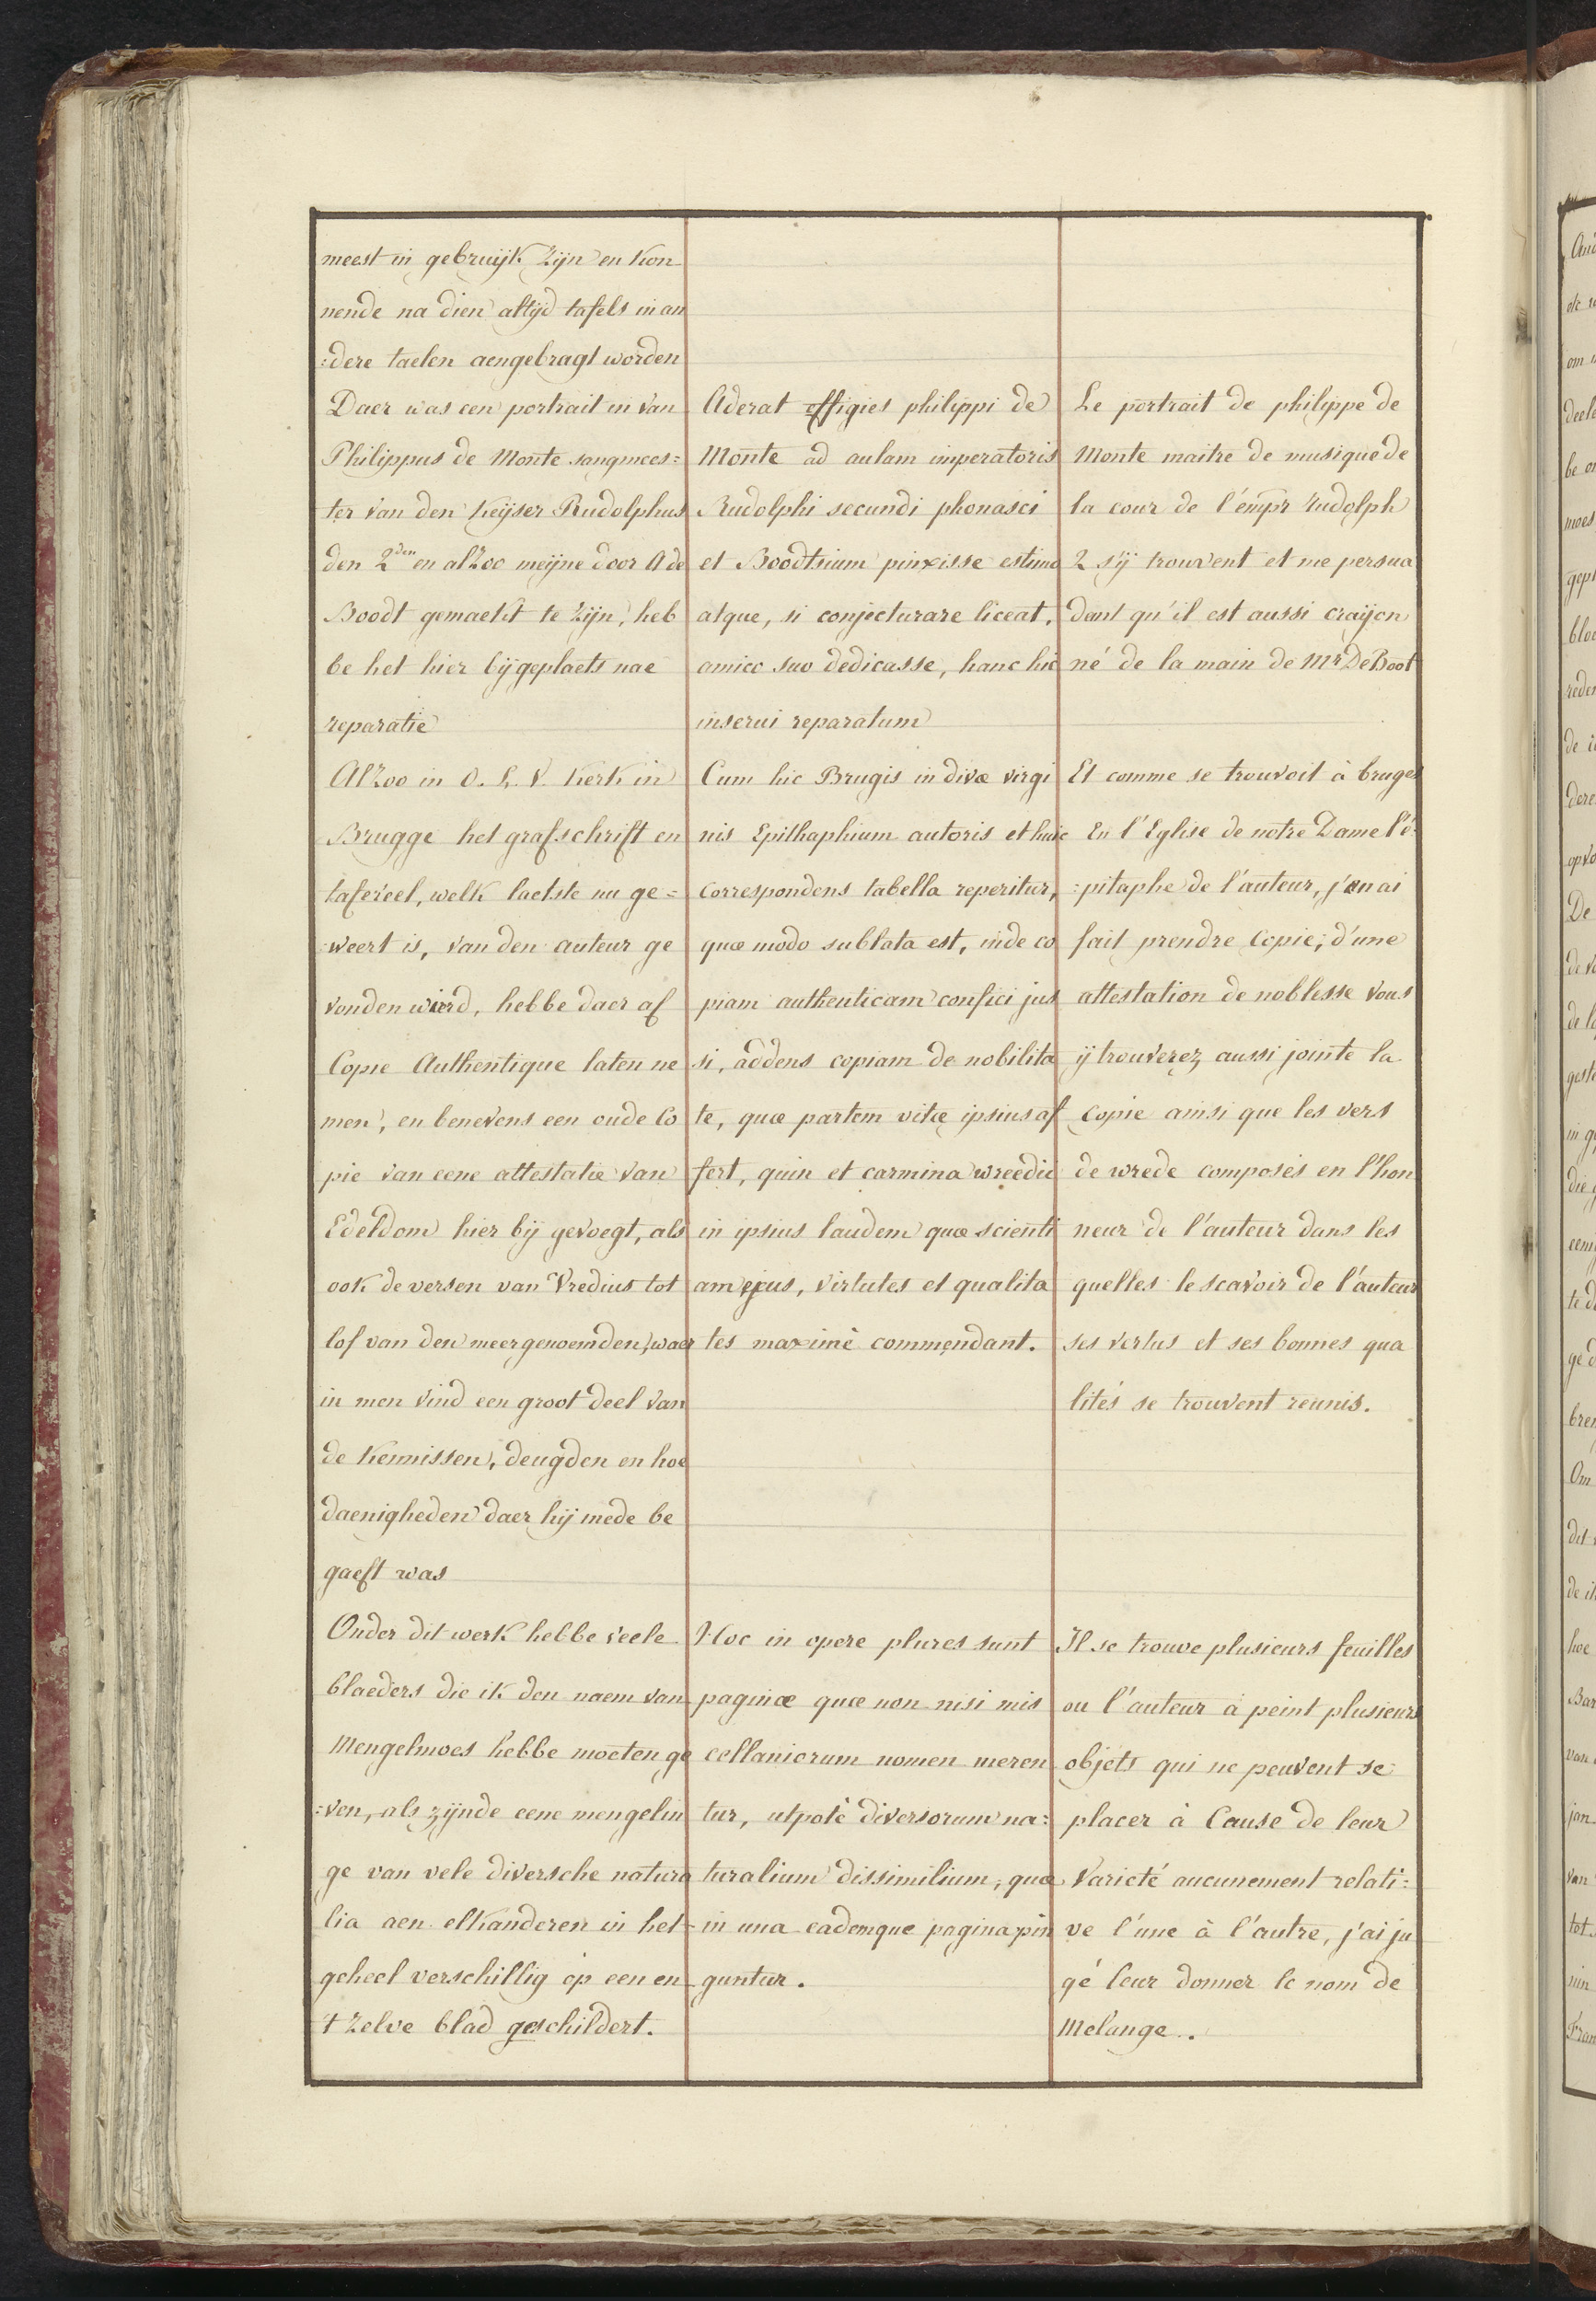 meest in gebruijk Zijn en kon
nende na dien altijd tafels in an
:dere taelen aengebragt worden
Daer was een portrait in van
Philippus de Monte sangmees=
ter van den Keijser Rudolphus
den 2den en alzoo meijne door A de
Boodt gemaekt te zijn, heb
be het hier bij geplaets nae
reparatie
Alzoo in O. L. V. Kerk in
Brugge het grafschrift en
tafereel, welk laetste nu ge=
:weert is, van den auteur ge
vonden wierd, hebbe daer af
Copie Authentique laten ne
men, en benevens een oude Co
pie van eene attestatie van
Edeldom hier bij gevoegt, als
ook de versen van Vredius tot
lof van den meergenoemden, waer
in men vind een groot deel van
de Kennissen, deugden en hoe
daenigheden daer hij mede be
gaeft was
Onder dit werk hebbe veele
blaeders die ik den naem van
Mengelmoes hebbe moeten ge
:ven, als zijnde eene mengelin
ge van vele diversche natura
lia aen elkanderen in het
geheel verschillig op een en
't zelve blad geschildert.
Aderat effigies philippi de
Monte ad aulam imperatoris
Rudolphi secundi phonasci
et Boodtsium pinxisse estimo
atque, si conjecturare liceat,
amico suo dedicasse, hanc hic
inserui reparatum
Cum hic Brugis in divæ virgi
nis Epithaphium autoris et huic
Correspondens tabella reperitur,
quæ modo sublata est, inde co
piam authenticam confici jus
si, addens copiam de nobilita
te, quæ partem vitæ ipsius af
fert, quin et carmina wreedie
in ipsius laudem quæ scienti
am ejus, virtutes et qualita
tes maximè commendant.
Hoc in opere plures sunt
paginæ quæ non nisi mis
cellaniorum nomen meren
tur, utpotè diversorum na=
turalium dissimilium, quæ
in una eademque pagina pin
guntur.
Le portrait de philippe de
Monte maitre de musique de
la cour de l'émpr rudolph
2 s'ÿ trouvent et me persua
dant qu'il est aussi craijon
né de la main de Mr De Boot
Et comme se trouvoit à bruges
En l'Eglise de notre Dame l'é=
:pitaphe de l'auteur, j'en ai
fait prendre Copie; d'une
attestation de noblesse vous
ÿ trouverez aussi jointe la
Copie ainsi que les vers
de wrede composés en l'hon
neur de l'auteur dans les
quelles le scavoir de l'auteur
ses vertus et ses bonnes qua
lités se trouvent réunis.
Il se trouve plusieurs feuilles
ou l'auteur à peint plusieurs
objets qui ne peuvent se
placer à Cause de leur
Varieté aucunement relati=
ve l'une à l'autre, j'ai ju
gé leur donner le nom de
Melange.